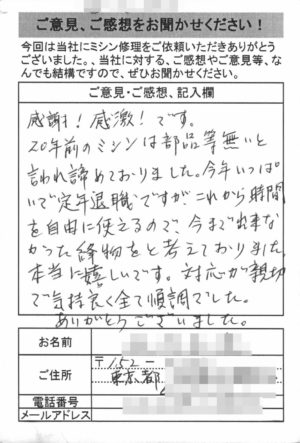 ご意見、ご感想をお聞かせください！
今回は当社にミシン修理をご依頼いただきありがとう
ございました。、当社に対する、ご感想やご意見等、な
んでも結構ですので、ぜひお聞かせください。
ご意見・ご感想、記入欄
感謝！感激！です。
20年前のミシンは部品等無いと
言われ諦めておりました。今年いっぱ
いで定年退職ですが、これから時間
を自由に使えるので、今まで出来な
かった縫物をと考えておりました。
本当に嬉しいです。対応が親切
で気持良く全て順調でした。
ありがとうございました。
お名前
ご住所
〒152-
東京都
電話番号
メールアドレス